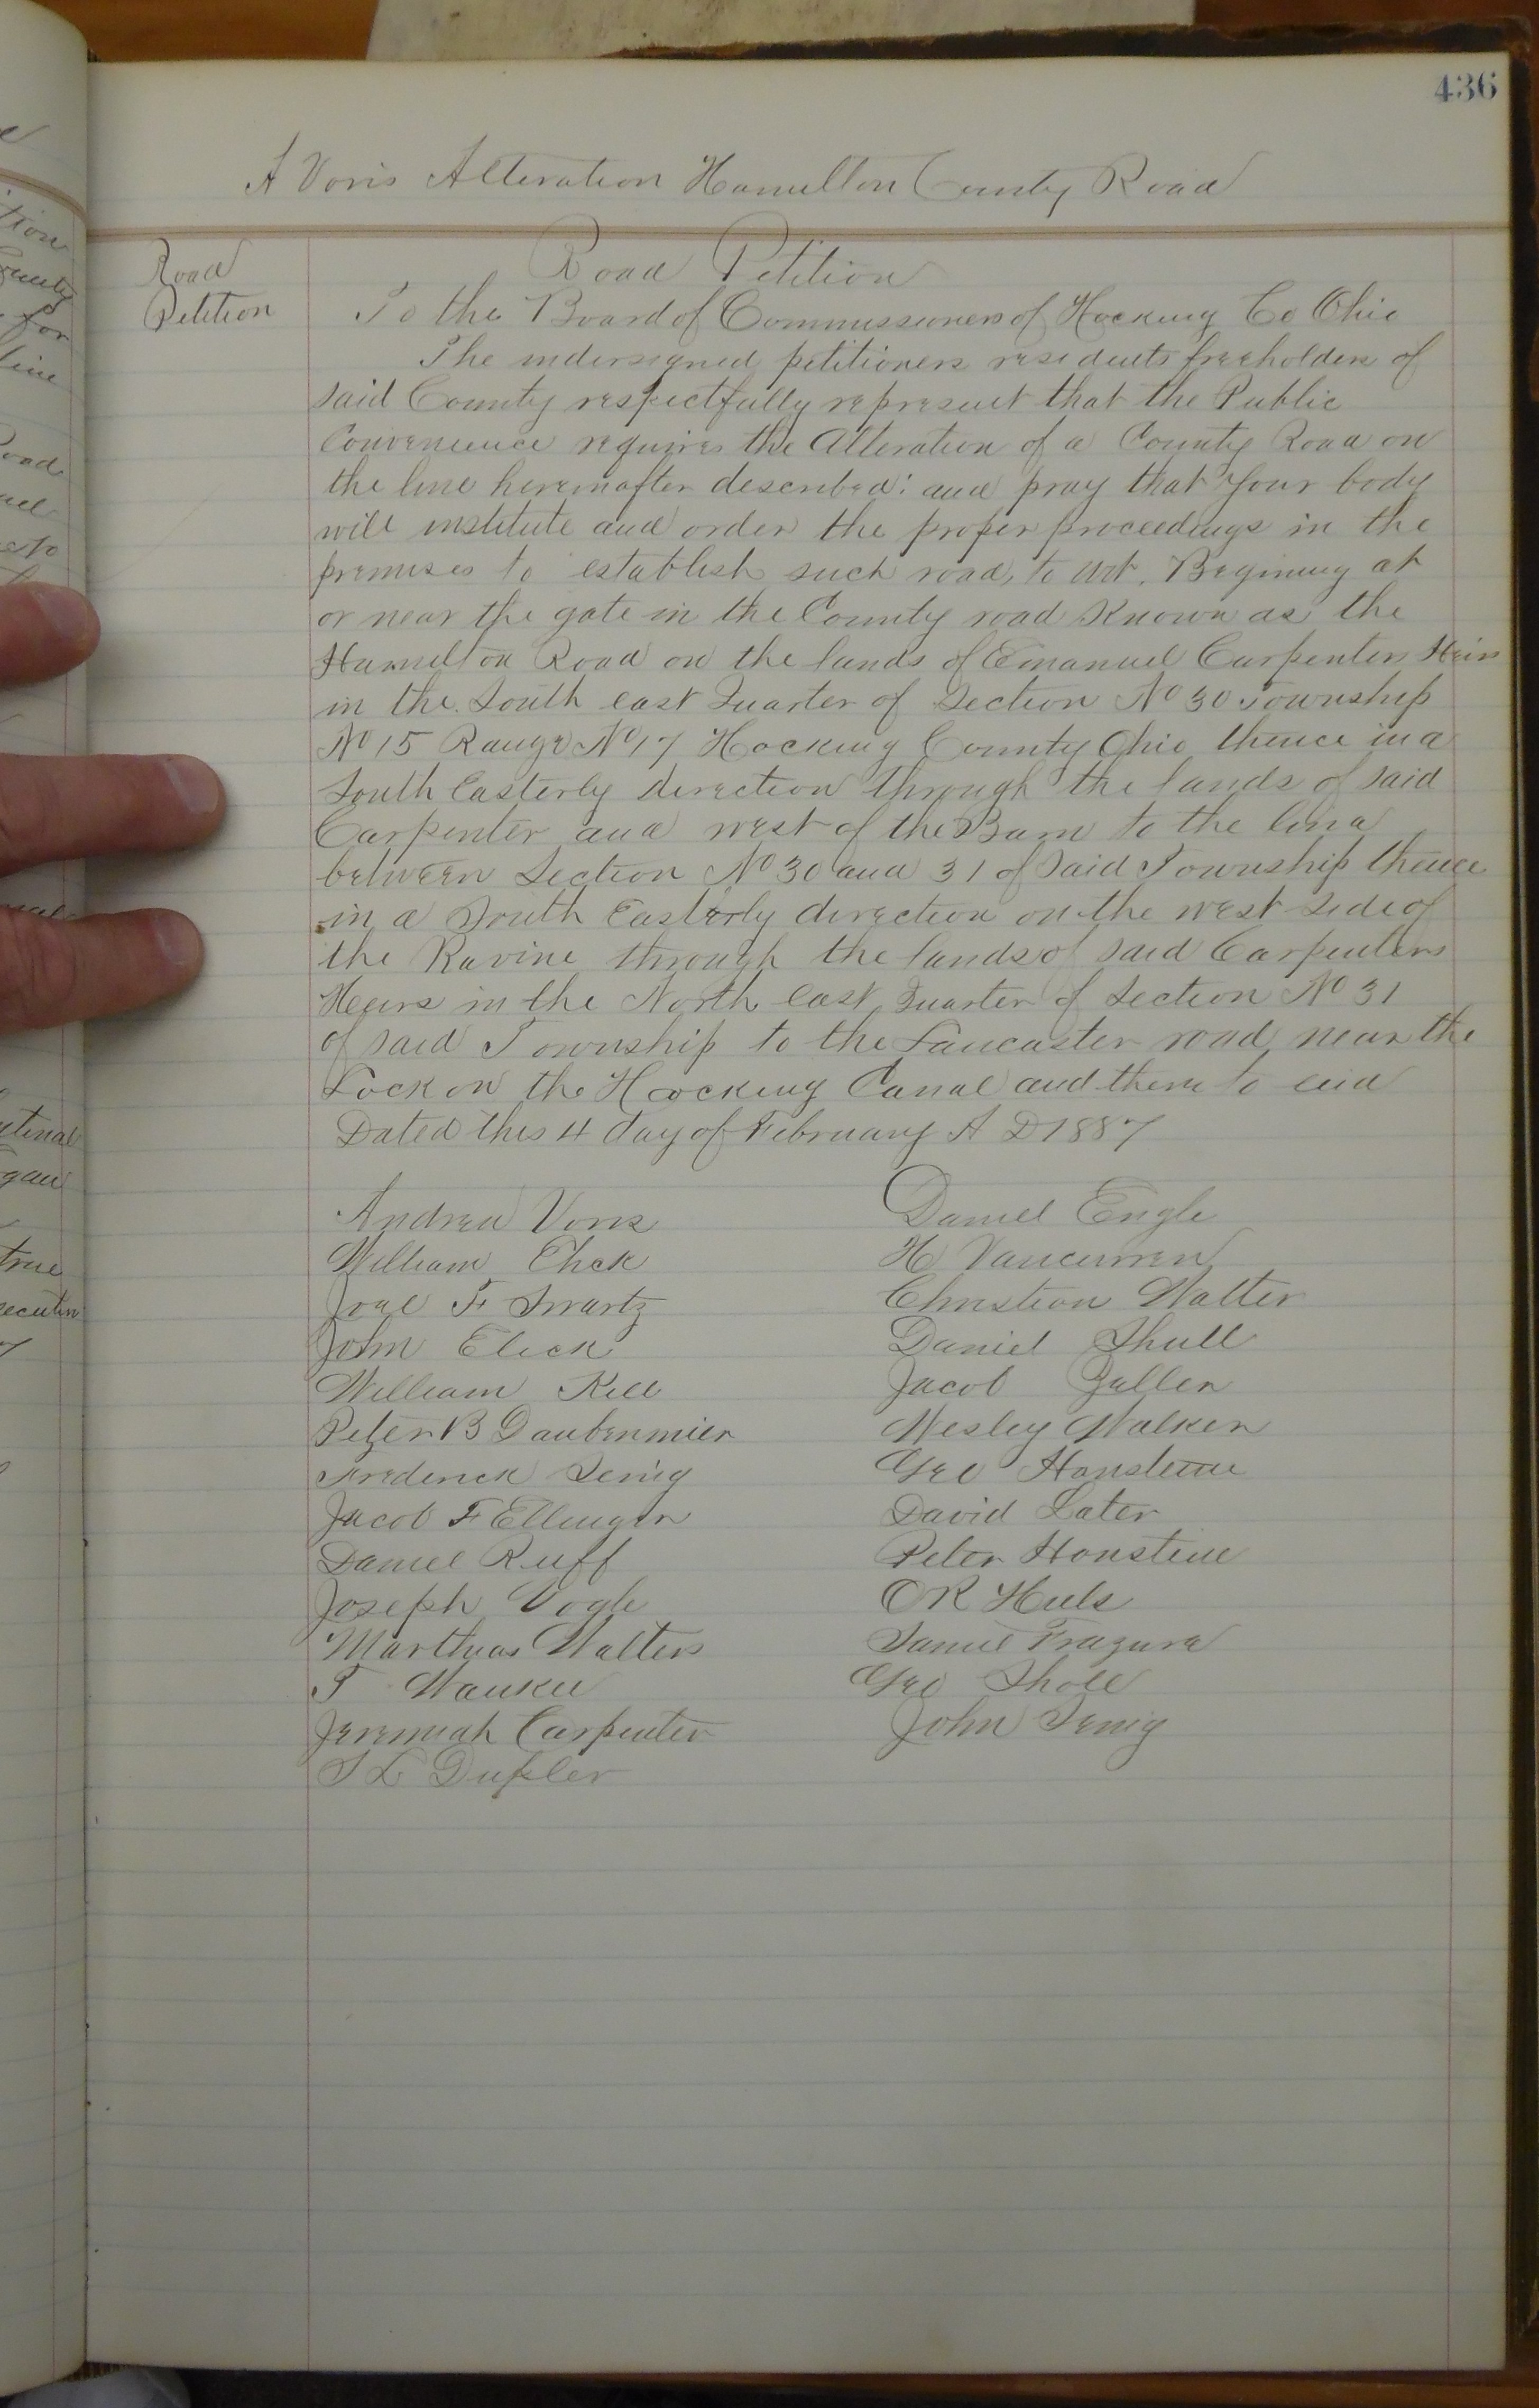 436
A Voris Alteration Hamilton County Road
Road
Petition
Road Petition
To the Board of Commissioners of Hocking Co Ohio
The undersigned petitioners residents freeholders of
said County respectfully represent that the Public
Convenience requires the Alteration of a County Road on
the line hereinafter described: and pray that your body
will institute and order the proper proceedings in the
premises to establish such road, to wit. Begining at
or near the gate in the County road Known as the
Hamilton Road on the lands of Emanuel Carpenters Heirs
in the South east Quarter of Section No 30 Township
No 15 Range No 17 Hocking County Ohio thence in a
South Easterly direction through the lands of said
Carpenter and west of the Barn to the line
between Section No 30 and 31 of Said Township thence
in a South Easterly direction on the west side of
the Ravine through the lands of said Carpenters
Heirs in the North east Quarter of Section No 31
of said Township to the Lancaster road near the
Lock on the Hocking Canal and there to end
Dated this 4 day of February A D 1887
Andrew Voris
William Elick
Joel F Swartz
John Elick
William Kell
Peter B Daubenmier
Frederick Senig
Jacob F Ellinger
Daniel Ruff
Joseph Vogle
Marthias Walters
T
Jeremiah Carpenter
S L Dupler
Daniel Engle
H Vancurren
Christian Walter
Daniel Shull
Jacob Zeller
Wesley Walker
Geo Honsteine
David Later
Peter Honstine
O R Huls
Geo Sholl
John Senig